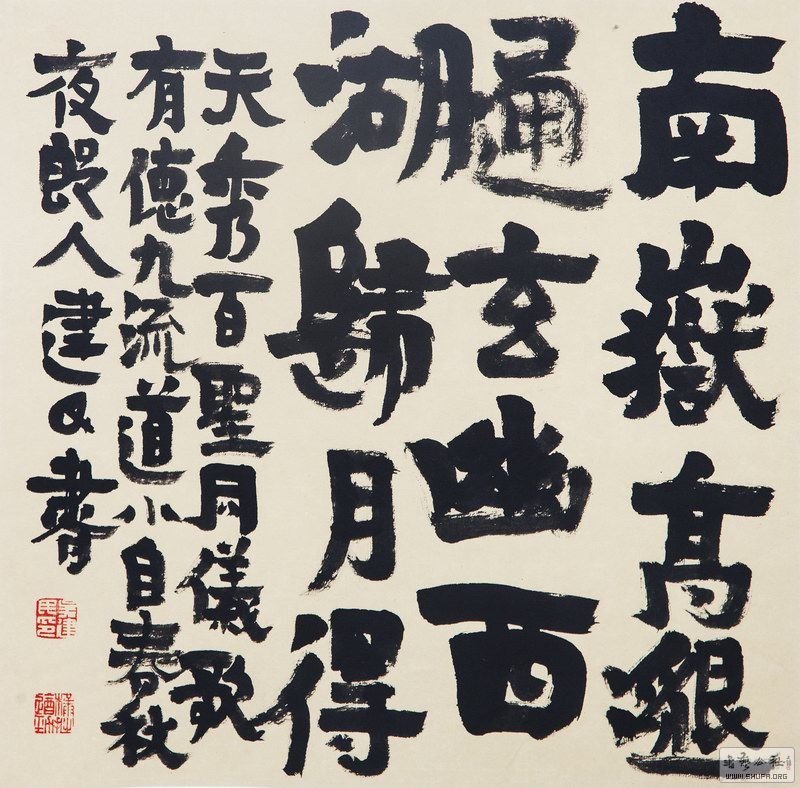 南嶽高
通玄幽西
湖歸月得
天秀百聖同儀
有德九流道小自春秋
夜郎人建書
書藝公社
WWW.SHUFA.ORG